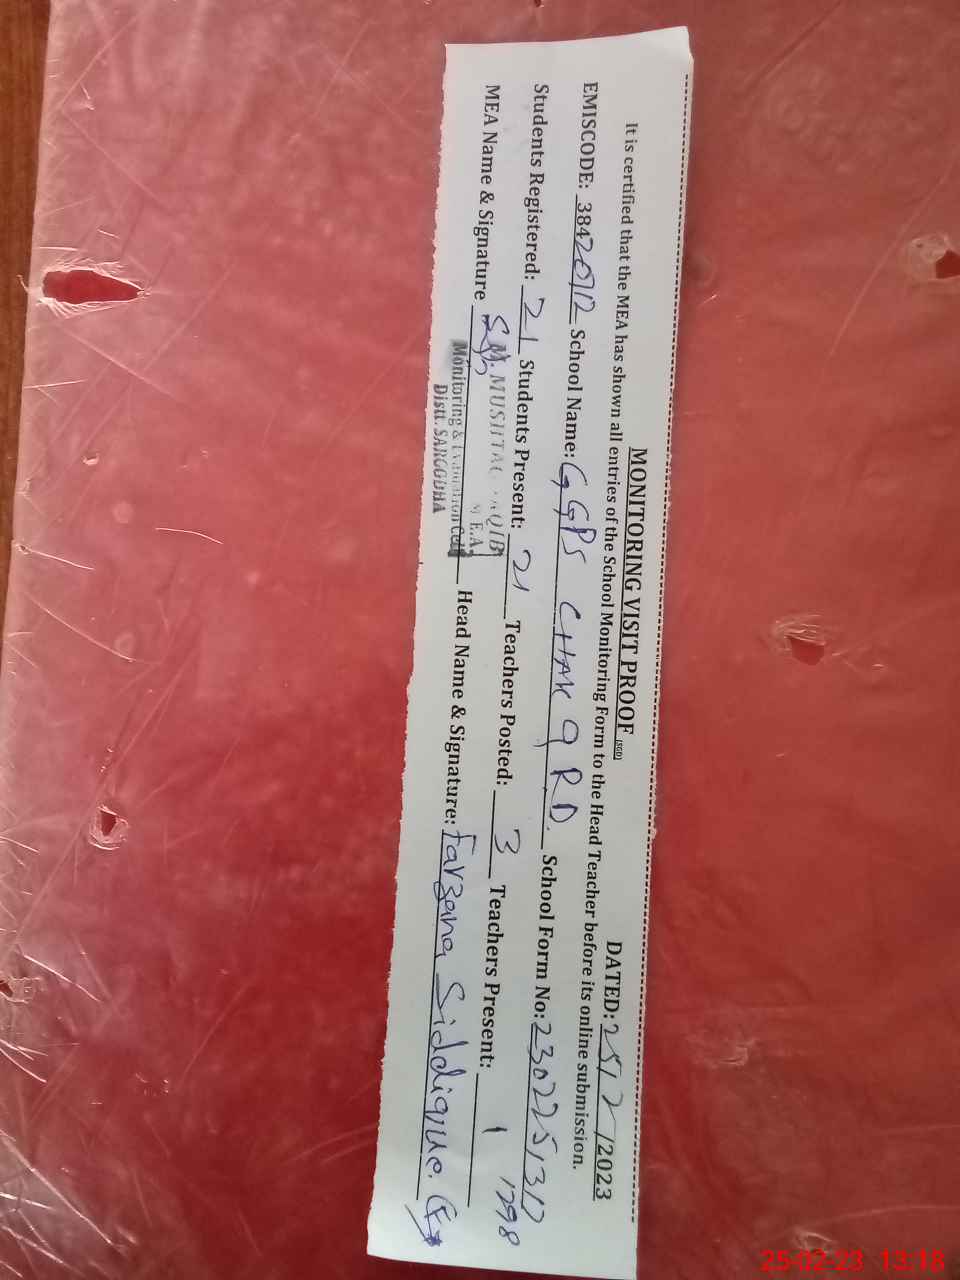 MONITORING VISIT PROOF (SGD) DATED: 25/2/2023
It is certified that the MEA has shown all entries of the School Monitoring Form to the Head Teacher before its online submission.
EMISCODE: 38420712 School Name: GGPS CHAK 9 RD. School Form No:
Students Registered: 21 Students Present: 21 Teachers Posted: 3 Teachers Present: 1
MEA Name & Signature Head Name & Signature: Farzana Siddique.
M. MUSHTAQ
M.E.A
Monitoring & Evaluation Cell
Distt. SARGODHA
25-02-23 13:18